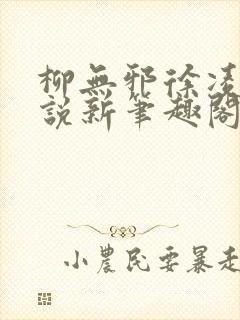 柳無邪徐凌
說新筆趣閣
小農民要暴走